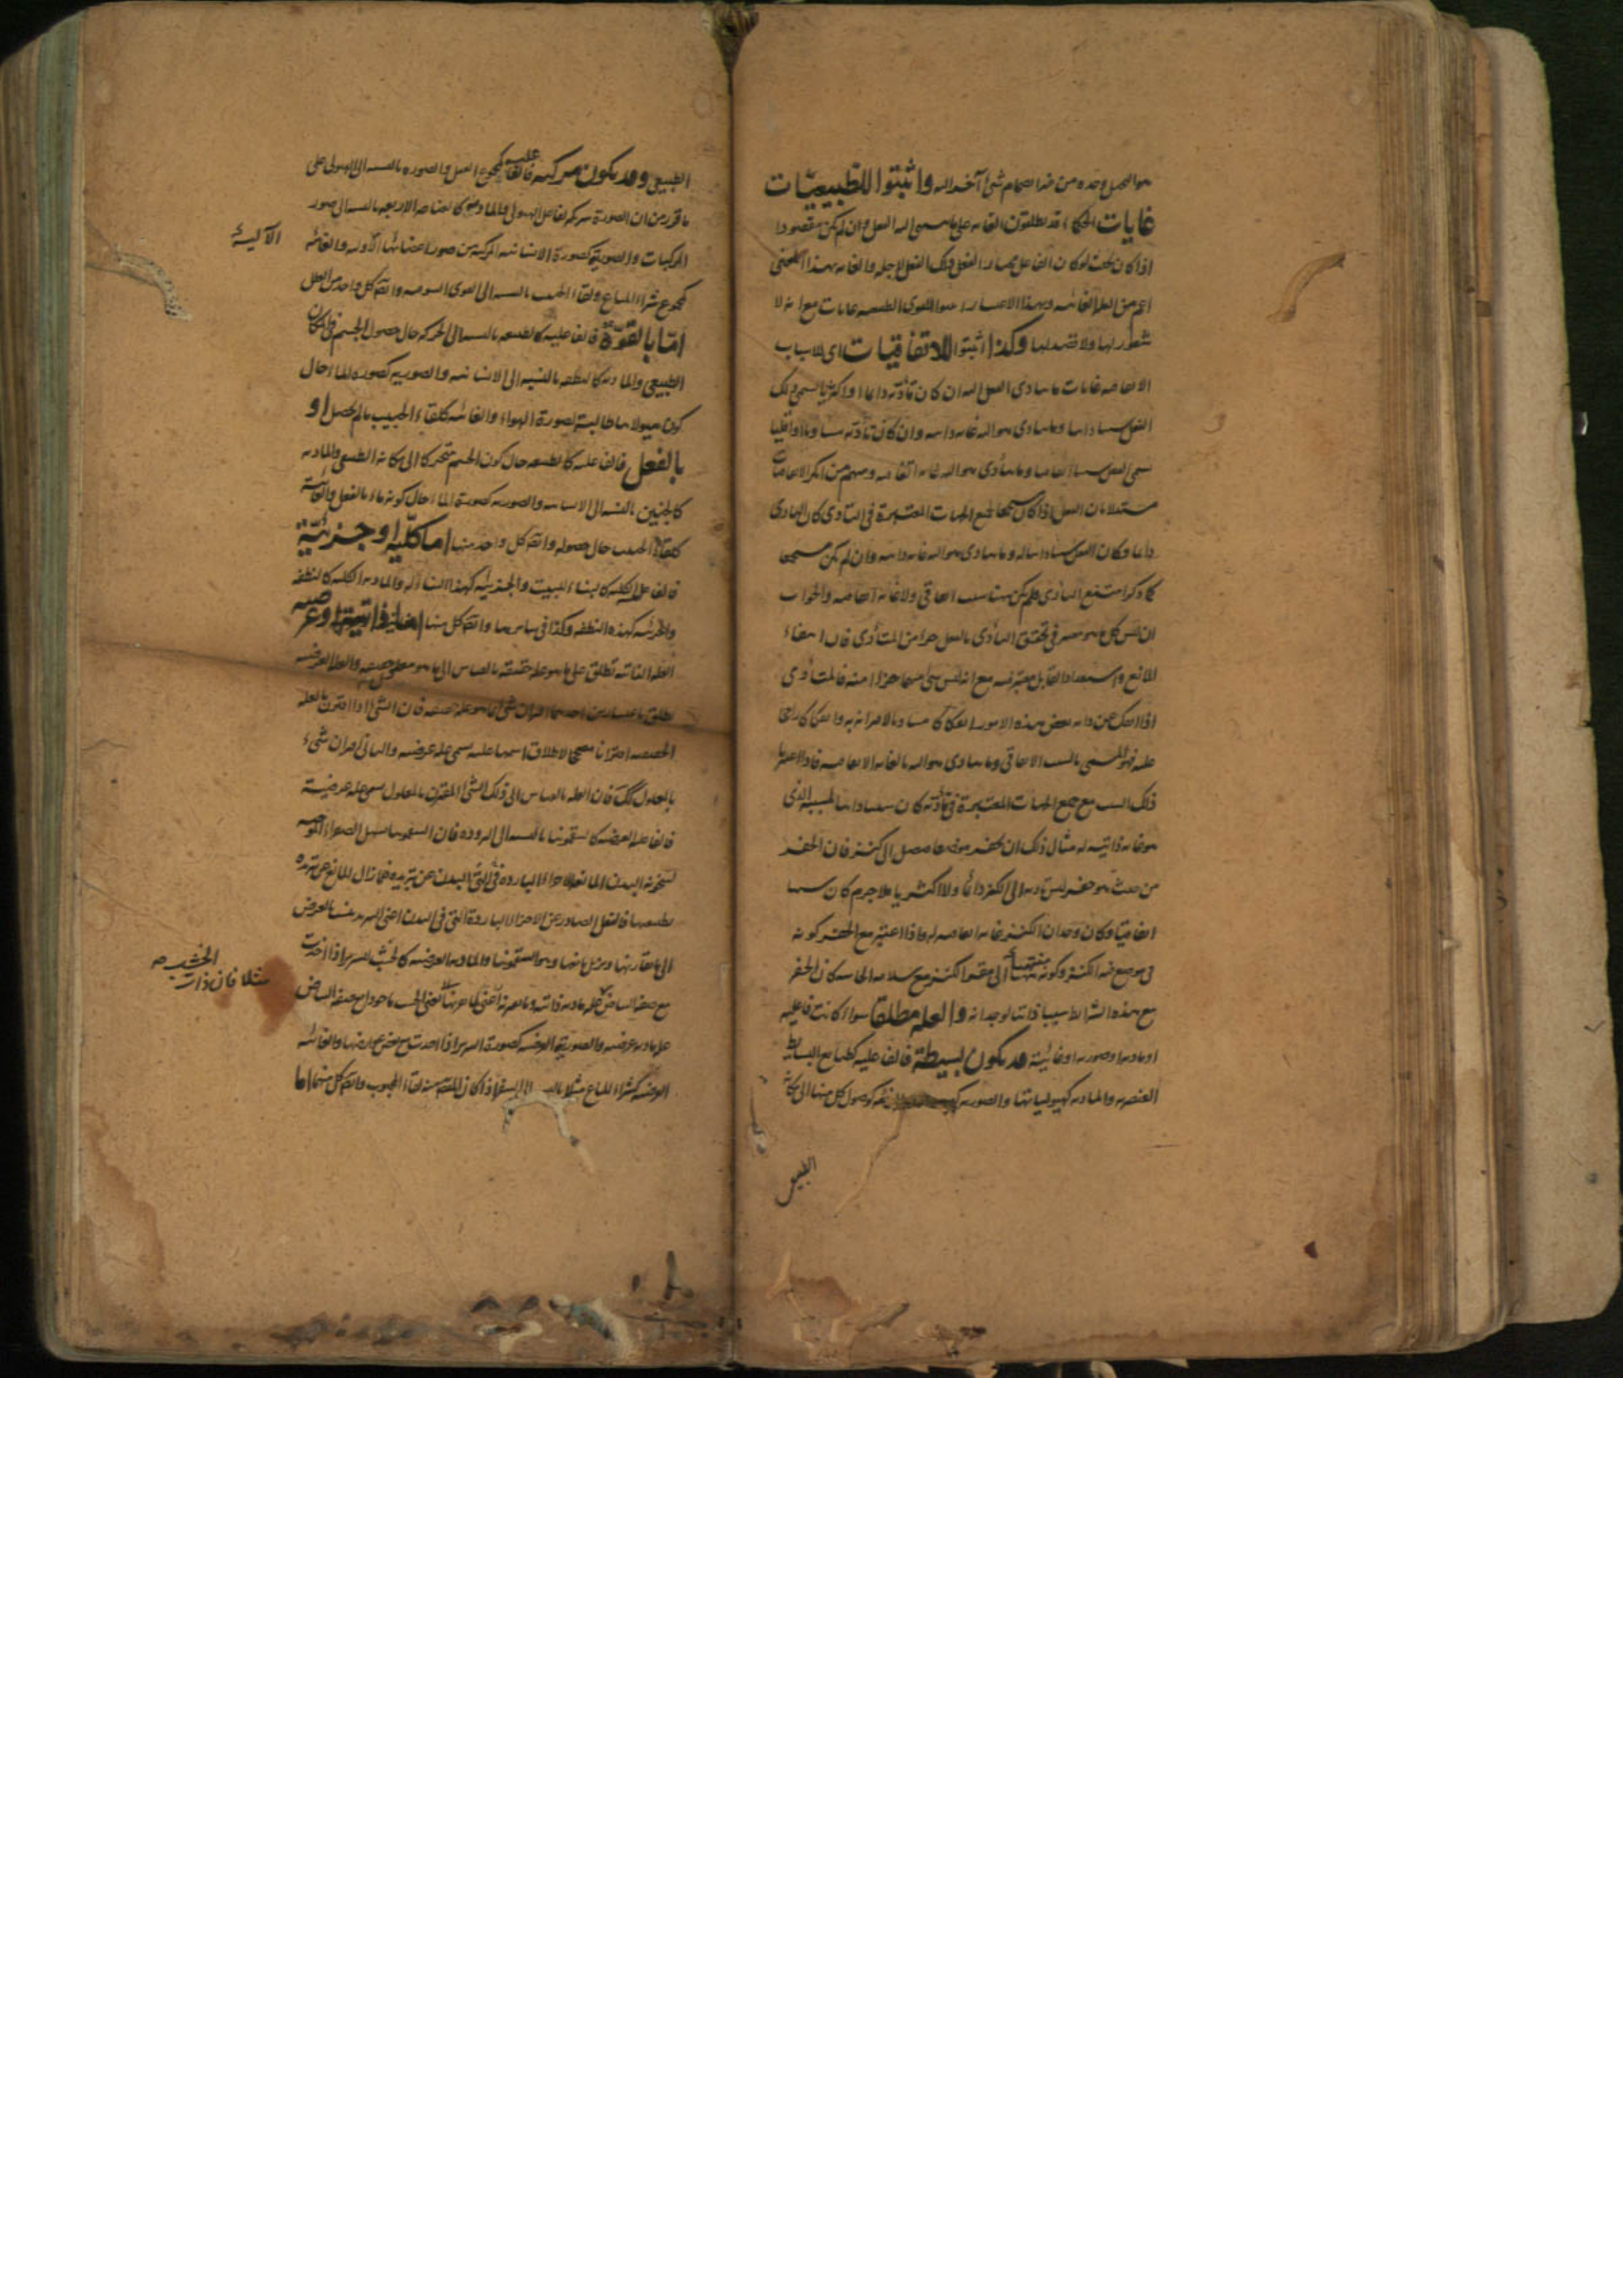 هو الحمل وحده من غير انضمام شئ آخر اليه واثبتوا للطبيعيات
غايات الحكماء قد يطلقون الغاية على ما ينتهى اليه الفعل وان لم يكن مقصودا
اذا كان بحيث لو كان الفاعل مختارا لفعل ذلك الفعل لاجله والغاية بهذا المعنى
اعم من العلة الغائية وبهذا الاعتبار اثبتوا للقوى الطبيعية غايات مع انه لا
شعور لها ولا قصد لها وكذا اثبتوا للاتفاقيات اى للاسباب
الاتفاقية غايات ما يتادى اليه الفعل ان كان تأديه دائما او اكثريا يسمى ذلك
الفعل سببا ذاتيا وما يتادى هو اليه غاية ذاتية وان كان تأديه مساويا او اقليا
يسمى الفعل سببا اتفاقيا وما يتأدى هو اليه غاية اتفاقية ومنهم من انكر الاتفاقيات
مستدلا بان الفعل اذا كان مستجمعا لجميع الجهات المعتبرة فى التادى كان التادى
دائما وكان الفعل سببا ذاتيا له وما يتادى هو اليه غاية ذاتية وان لم يكن مستجمعا
لما ذكر امتنع التأدى فلم يكن هناك سبب اتفاقى ولا غاية اتفاقية والجواب
ان ليس كل ما هو معتبر فى تحقق التأدى بالفعل جزءا من المتأدى فان انتفاء
المانع واستعداد القابل معتبر فيه مع انه ليس شئ منهما جزءا منه فالمتأدى
اذا انفك عن ذاته بعض هذه الامور انفكاكا مساويا لاقترانه به او انفكاكا راجحا
عليه فهو المسمى بالسبب الاتفاقى وما يتادى هو اليه بالغاية الاتفاقية فاذا اعتبر
ذلك السبب مع جميع الجهات المعتبرة فى تأديه كان سببا ذاتيا لمسببه الذى
هو غاية ذاتية له مثال ذلك ان يحفر موضعا فيصل الى كنز فان الحفر
من حيث هو حفر ليس تاديه الى الكنز دائما ولا اكثريا فلا جرم كان سببا
اتفاقيا وكان وجدان الكنز غاية اتفاقية له واذا اعتبر مع الحفر كونه
فى موضع فيه الكنز وكونه منتهيا الى مقر الكنز مع سلامة الحاسة كان الحفر
مع هذه الشرائط سببا ذاتيا لوجدانه والعلة مطلقا سواء كانت فاعلية
او مادية او صورية او غائية قد يكون بسيطة فالفاعلية كطبائع البسائط
العنصرية والمادية كهيولياتها والصورية والغائية كوصول كل منها الى مكانه
الطبيعى
الطبيعى وقد يكون مركبة فالفاعلية كمجموع العقل والصورة بالنسبة الى الهيولى على
ما تقرر من ان الصورة شريكة لفاعل الهيولى والمادية كالعناصر الاربعة بالنسبة الى صور
المركبات والصورية كصورة الانسانية المركبة من صور اعضائها الآلية والغائية
الآلية
كمجموع شراء المتاع ولقاء الحبيب بالنسبة الى وايضا كل واحد من العلل
اما بالقوة فالفاعلية كالطبيعة بالنسبة الى الحركة حال حصول الجسم فى مكانه
الطبيعى والمادية كالنطفة بالنسبة الى الانسانية والصورية كصورة الماء حال
كون هيولاها ملابسة لصورة الهواء والغائية كلقاء الحبيب ما لم يحصل او
بالفعل فالفاعلية كالطبيعة حال كون الجسم متحركا الى مكانه الطبيعى والمادية
كالجنين بالنسبة الى الانسانية والصورية كصورة الماء حال كونه ماء بالفعل والغائية
كلقاء الحبيب حال حصوله وايضا كل واحد منها اما كلية او جزئية
فالفاعلية الكلية كالبناء للبيت والجزئية كهذا البناء له والمادية الكلية كالنطفة
والجزئية كهذه النطفة وكذا فى سائرها وايضا كل منها اما ذاتية او عرضية
العلة الذاتية تطلق على ما هو علة حقيقة بالقياس الى ما هو معلول حقيقة والعلة العرضية
تطلق باعتبارين احدهما اقتران شئ بما هو علة حقيقة فان الشئ اذا اقترن بالعلة
الحقيقية اقترانا مصححا لاطلاق اسمها عليه يسمى علة عرضية والثانى اقتران شئ
بالمعلول كذلك فان العلة بالقياس الى ذلك الشئ المقترن بالمعلول يسمى علة عرضية
فالفاعلية العرضية كالسقمونيا بالنسبة الى البرودة فان السقمونيا يسهل الصفراء الموجبة
لسخونة البدن المانعة للاجزاء الباردة التى فى البدن عن تبريده فلما زال المانع عن تبريده
بطبعها فالفعل الصادر عن الاجزاء الباردة التى فى البدن اعنى التبريد ينسب بالعرض
الى ما يقارنها ويزيل مانعها وهو السقمونيا والمادية العرضية كالخشب للسرير اذا اخذت
مع صفة البياض مثلا فان ذات الخشب علة مادية ذاتية وما مع صفة البياض
علة مادية عرضية والصورية العرضية كصورة السرير اذا اخذت مع بعض عوارضها والغائية
العرضية كشراء المتاع مثلا بالنسبة الى السفر اذا كان المقصود منه لقاء المحبوب وايضا كل منها اما